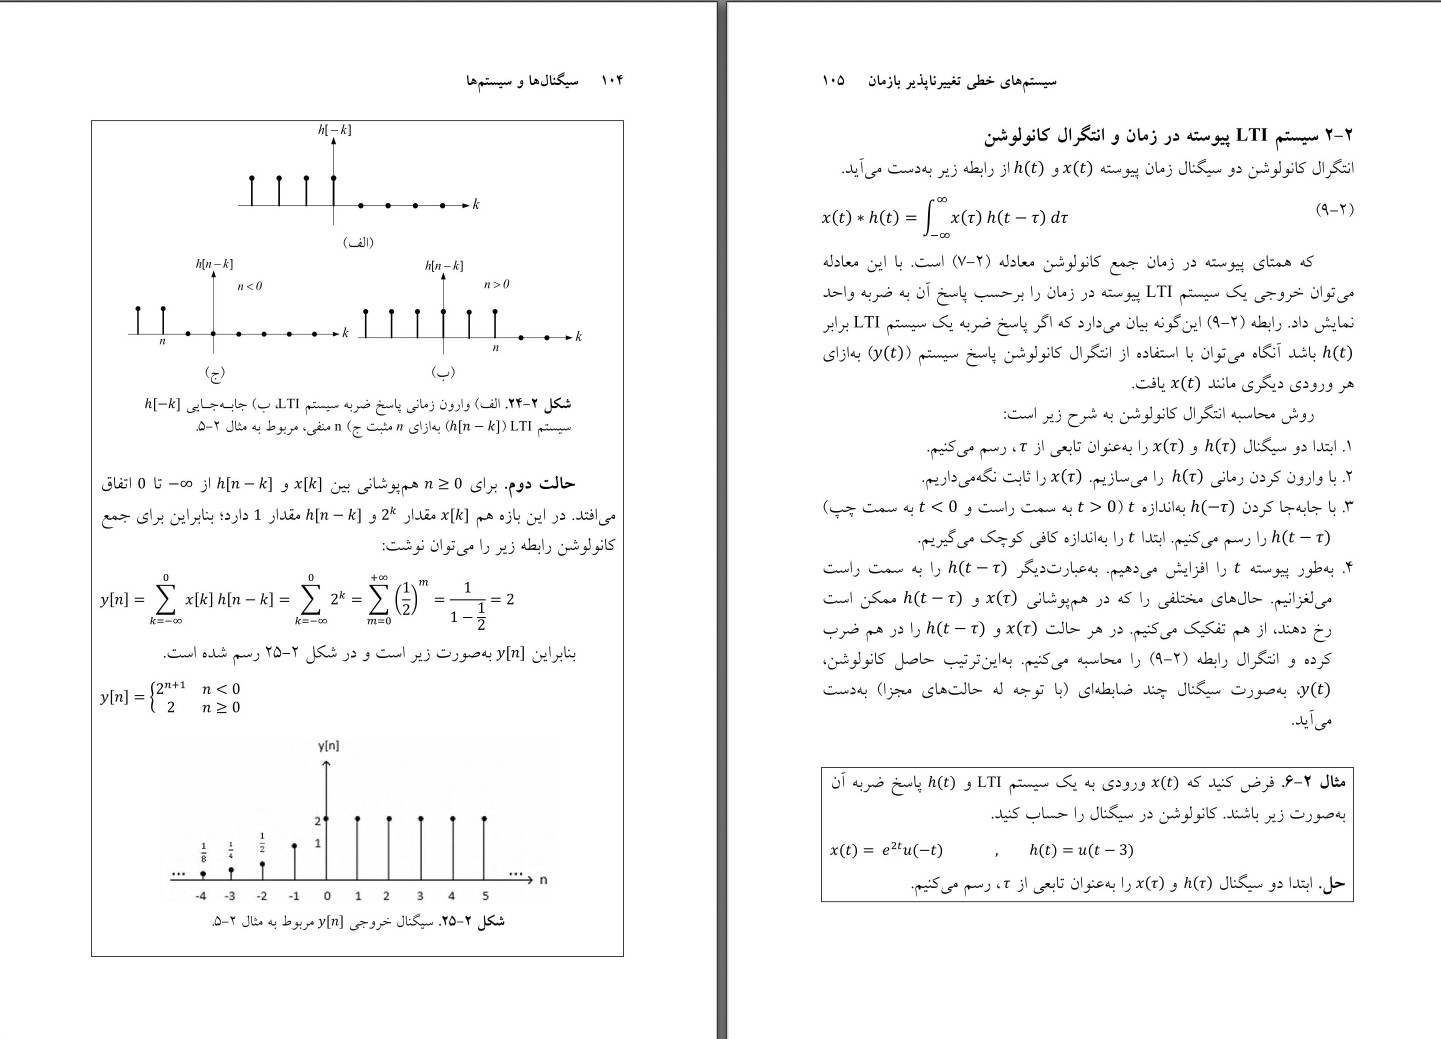 ۱۰۴ سیگنال‌ها و سیستم‌ها
h[−k]
k
(الف)
h[n−k]
n>0
k
n
(ب)
h[n−k]
n<0
k
n
(ج)
شکل ۲-۲۴. الف) وارون زمانی پاسخ ضربه سیستم LTI، ب) جابه‌جایی h[−k]
سیستم LTI (h[n − k]) به‌ازای n مثبت ج) n منفی، مربوط به مثال ۲-۵.
حالت دوم. برای n ≥ 0 هم‌پوشانی بین x[k] و h[n − k] از ∞− تا 0 اتفاق
می‌افتد. در این بازه هم x[k] مقدار 2^k و h[n − k] مقدار 1 دارد؛ بنابراین برای جمع
کانولوشن رابطه زیر را می‌توان نوشت:
y[n] = ∑_{k=−∞}^{0} x[k] h[n − k] = ∑_{k=−∞}^{0} 2^k = ∑_{m=0}^{+∞} (1/2)^m = 1/(1 − 1/2) = 2
بنابراین y[n] به‌صورت زیر است و در شکل ۲-۲۵ رسم شده است.
y[n] = { 2^{n+1} n < 0
2 n ≥ 0
y[n]
2
1
1/8 1/4 1/2
... ... n
-4 -3 -2 -1 0 1 2 3 4 5
شکل ۲-۲۵. سیگنال خروجی y[n] مربوط به مثال ۲-۵.
سیستم‌های خطی تغییرناپذیر بازمان ۱۰۵
۲-۲ سیستم LTI پیوسته در زمان و انتگرال کانولوشن
انتگرال کانولوشن دو سیگنال زمان پیوسته x(t) و h(t) از رابطه زیر به‌دست می‌آید.
x(t) ∗ h(t) = ∫_{−∞}^{∞} x(τ) h(t − τ) dτ (۲-۹)
که همتای پیوسته در زمان جمع کانولوشن معادله (۲-۷) است. با این معادله
می‌توان خروجی یک سیستم LTI پیوسته در زمان را برحسب پاسخ آن به ضربه واحد
نمایش داد. رابطه (۲-۹) این‌گونه بیان می‌دارد که اگر پاسخ ضربه یک سیستم LTI برابر
h(t) باشد آنگاه می‌توان با استفاده از انتگرال کانولوشن پاسخ سیستم (y(t)) به‌ازای
هر ورودی دیگری مانند x(t) یافت.
روش محاسبه انتگرال کانولوشن به شرح زیر است:
۱. ابتدا دو سیگنال h(τ) و x(τ) را به‌عنوان تابعی از τ، رسم می‌کنیم.
۲. با وارون کردن رمانی h(τ) را می‌سازیم. x(τ) را ثابت نگه‌می‌داریم.
۳. با جابه‌جا کردن h(−τ) به‌اندازه t (t > 0 به سمت راست و t < 0 به سمت چپ)
h(t − τ) را رسم می‌کنیم. ابتدا t را به‌اندازه کافی کوچک می‌گیریم.
۴. به‌طور پیوسته t را افزایش می‌دهیم. به‌عبارت‌دیگر h(t − τ) را به سمت راست
می‌لغزانیم. حال‌های مختلفی را که در هم‌پوشانی x(τ) و h(t − τ) ممکن است
رخ دهند، از هم تفکیک می‌کنیم. در هر حالت x(τ) و h(t − τ) را در هم ضرب
کرده و انتگرال رابطه (۲-۹) را محاسبه می‌کنیم. به‌این‌ترتیب حاصل کانولوشن،
y(t)، به‌صورت سیگنال چند ضابطه‌ای (با توجه له حالت‌های مجزا) به‌دست
می‌آید.
مثال ۲-۶. فرض کنید که x(t) ورودی به یک سیستم LTI و h(t) پاسخ ضربه آن
به‌صورت زیر باشند. کانولوشن در سیگنال را حساب کنید.
x(t) = e^{2t}u(−t) , h(t) = u(t − 3)
حل. ابتدا دو سیگنال h(τ) و x(τ) را به‌عنوان تابعی از τ، رسم می‌کنیم.